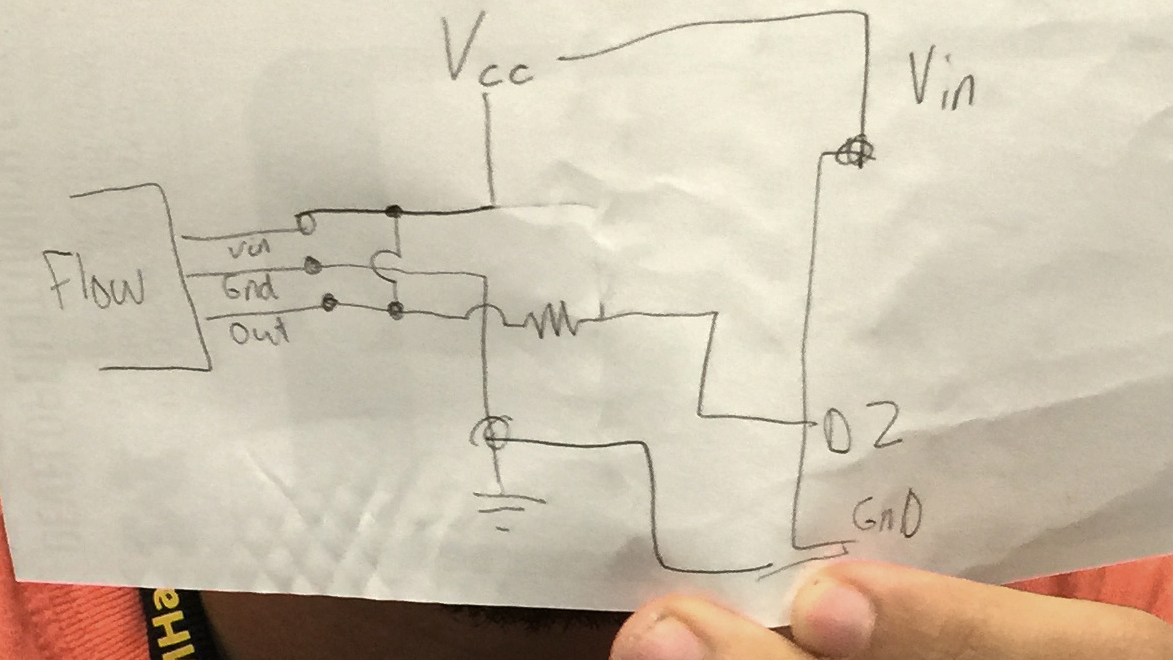 Vcc
Vin
Flow
Vin
Gnd
Out
D2
GnD
eH